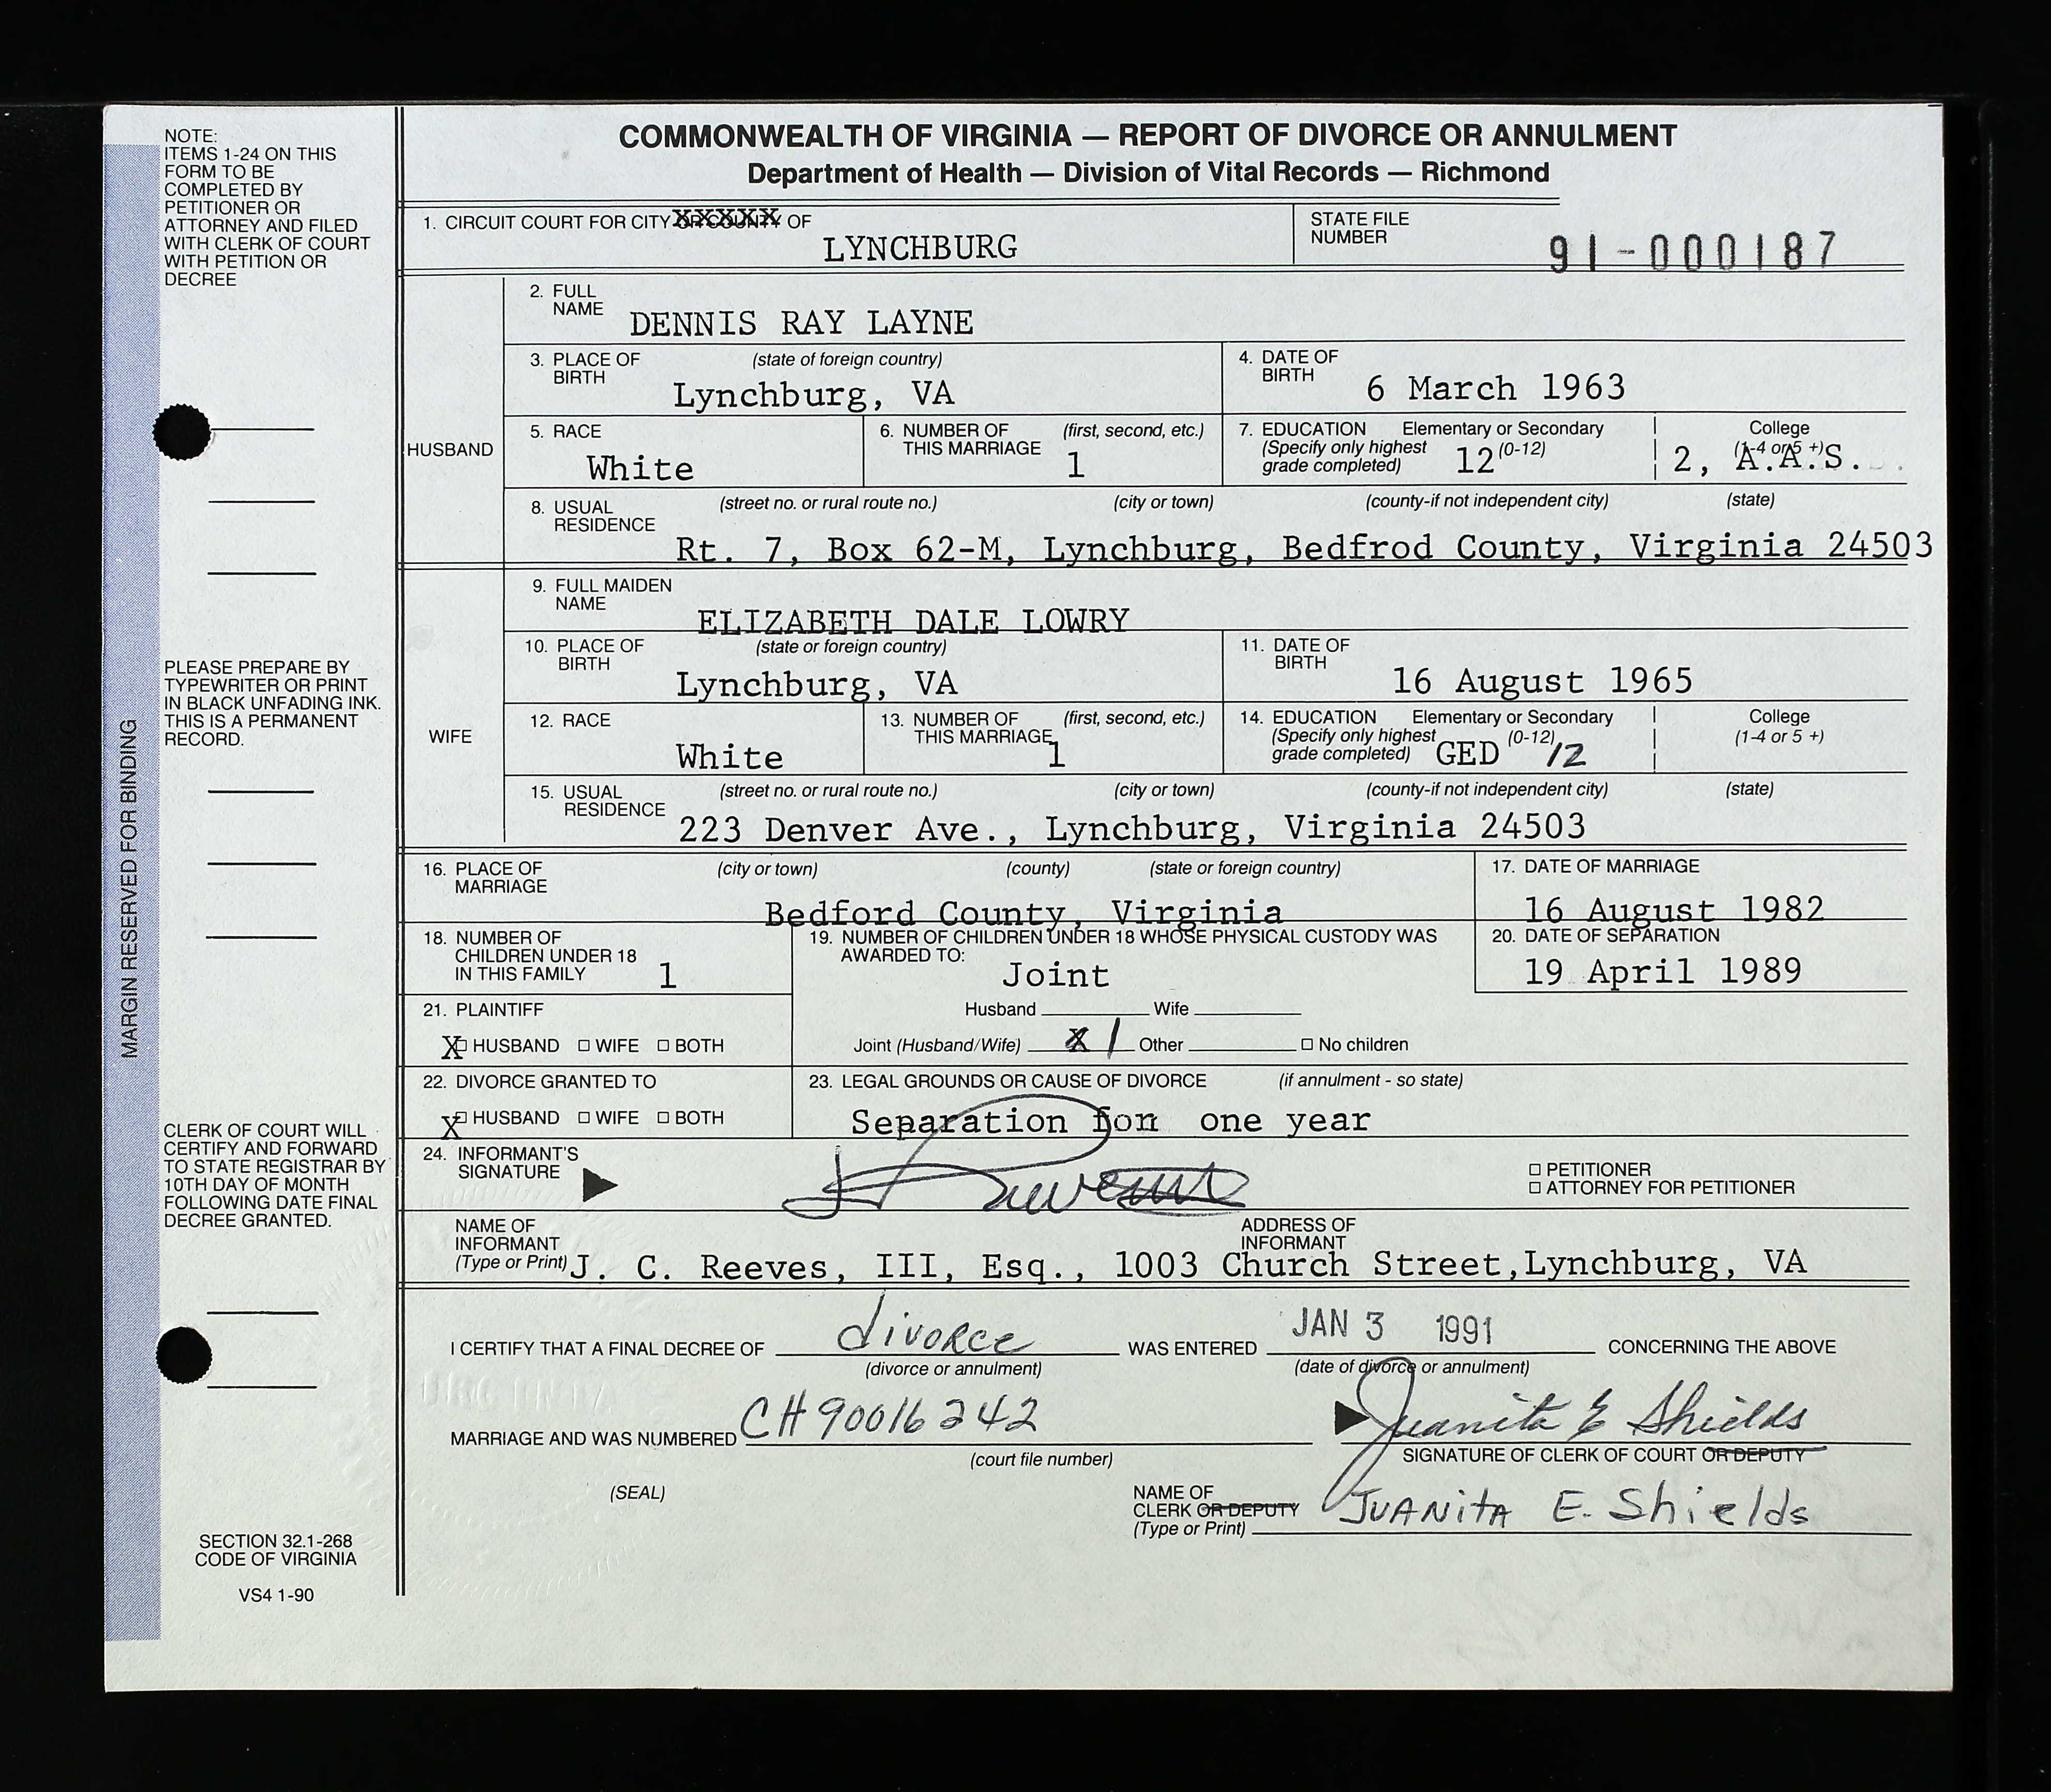 COMMONWEALTH OF VIRGINIA — REPORT OF DIVORCE OR ANNULMENT
Department of Health — Division of Vital Records — Richmond
NOTE:
ITEMS 1-24 ON THIS
FORM TO BE
COMPLETED BY
PETITIONER OR
ATTORNEY AND FILED
WITH CLERK OF COURT
WITH PETITION OR
DECREE
PLEASE PREPARE BY
TYPEWRITER OR PRINT
IN BLACK UNFADING INK.
THIS IS A PERMANENT
RECORD.
MARGIN RESERVED FOR BINDING
CLERK OF COURT WILL
CERTIFY AND FORWARD
TO STATE REGISTRAR BY
10TH DAY OF MONTH
FOLLOWING DATE FINAL
DECREE GRANTED.
SECTION 32.1-268
CODE OF VIRGINIA
VS4 1-90
1. CIRCUIT COURT FOR CITY OR COUNTY OF
XXXXX
LYNCHBURG
STATE FILE
NUMBER
91-000187
HUSBAND
2. FULL
NAME
DENNIS RAY LAYNE
3. PLACE OF (state of foreign country)
BIRTH
Lynchburg, VA
4. DATE OF
BIRTH
6 March 1963
5. RACE
White
6. NUMBER OF (first, second, etc.)
THIS MARRIAGE
1
7. EDUCATION Elementary or Secondary College
(Specify only highest (0-12) (1-4 or 5 +)
grade completed)
12 2, A.A.S.
8. USUAL (street no. or rural route no.) (city or town) (county-if not independent city) (state)
RESIDENCE
Rt. 7, Box 62-M, Lynchburg, Bedfrod County, Virginia 24503
WIFE
9. FULL MAIDEN
NAME
ELIZABETH DALE LOWRY
10. PLACE OF (state or foreign country)
BIRTH
Lynchburg, VA
11. DATE OF
BIRTH
16 August 1965
12. RACE
White
13. NUMBER OF (first, second, etc.)
THIS MARRIAGE
1
14. EDUCATION Elementary or Secondary College
(Specify only highest (0-12) (1-4 or 5 +)
grade completed) GED 12
15. USUAL (street no. or rural route no.) (city or town) (county-if not independent city) (state)
RESIDENCE
223 Denver Ave., Lynchburg, Virginia 24503
16. PLACE OF (city or town) (county) (state or foreign country)
MARRIAGE
Bedford County, Virginia
17. DATE OF MARRIAGE
16 August 1982
18. NUMBER OF
CHILDREN UNDER 18
IN THIS FAMILY 1
19. NUMBER OF CHILDREN UNDER 18 WHOSE PHYSICAL CUSTODY WAS
AWARDED TO:
Joint
Husband Wife
Joint (Husband/Wife) X 1 Other No children
20. DATE OF SEPARATION
19 April 1989
21. PLAINTIFF
X HUSBAND WIFE BOTH
22. DIVORCE GRANTED TO
X HUSBAND WIFE BOTH
23. LEGAL GROUNDS OR CAUSE OF DIVORCE (if annulment - so state)
Separation for one year
24. INFORMANT'S
SIGNATURE
PETITIONER
ATTORNEY FOR PETITIONER
NAME OF
INFORMANT
(Type or Print)
ADDRESS OF
INFORMANT
J. C. Reeves, III, Esq., 1003 Church Street,Lynchburg, VA
I CERTIFY THAT A FINAL DECREE OF divorce WAS ENTERED JAN 3 1991 CONCERNING THE ABOVE
(divorce or annulment) (date of divorce or annulment)
MARRIAGE AND WAS NUMBERED CH90016242 Juanita E Shields
(court file number) SIGNATURE OF CLERK OF COURT OR DEPUTY
(SEAL)
NAME OF
CLERK OR DEPUTY
(Type or Print)
JUANitA E. Shields